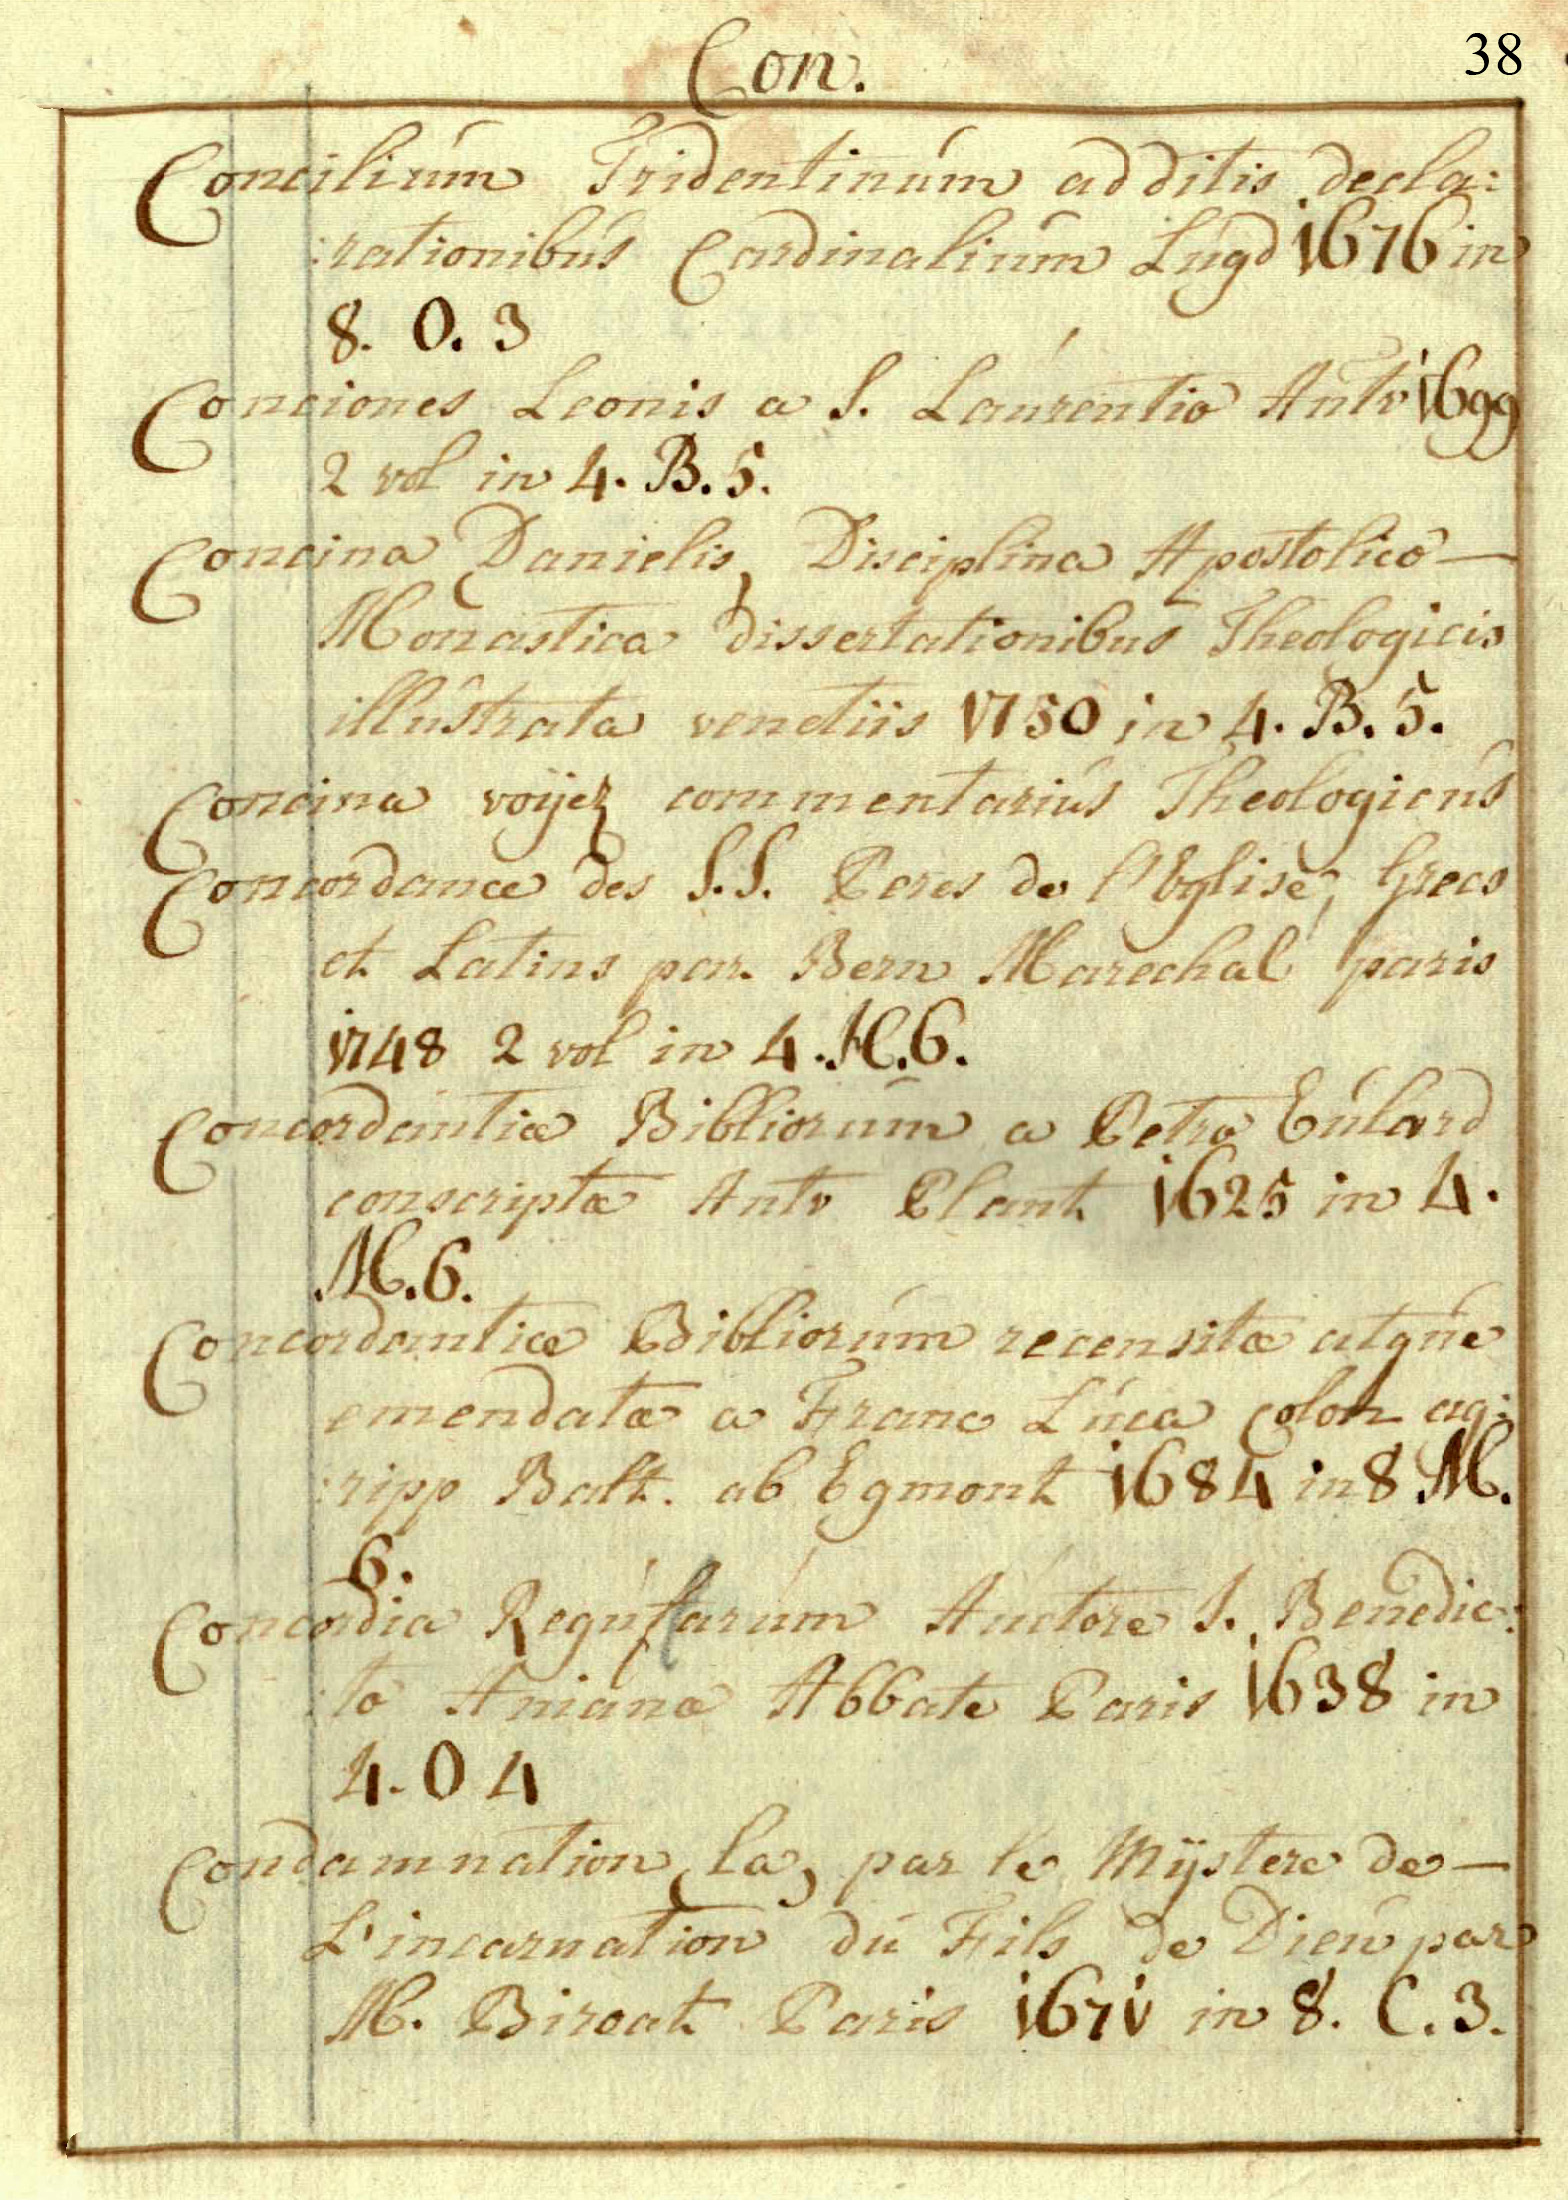 38
Con.
Concilium Tridentinum additis decla:
:rationibus Cardinalium Lugd 1676 in
8. O. 3
Conciones Leonis a S. Laurentio Antv 1699
2 vol in 4. B. 5.
Concina Danielis, Disciplina Apostolico—
Monastica dissertationibus Theologicis
illustrata venetiis 1750 in 4. B. 5.
Concina voÿez commentarius Theologicus
Concordance des S.S. Peres de l'Eglise, Grecs
et Latins par Bern Marechal paris
1748 2 vol in 4. M. 6.
Concordantiæ Bibliorum a Petro Eulard
conscriptæ Antv Plant 1625 in 4.
M. 6.
Concordantiæ Bibliorum recensitæ atque
emendatæ a Franc Luca colon ag:
:ripp Balt. ab Egmont 1684 in 8 M.
6.
Concordia Regularum Auctore S. Benedic:
:to Aniano Abbate Paris 1638 in
4. O 4
Condamnation, la, par le Mÿstere de—
L'incarnation du Fils de Dieu par
M. Biroat Paris 1671 in 8. C. 3.